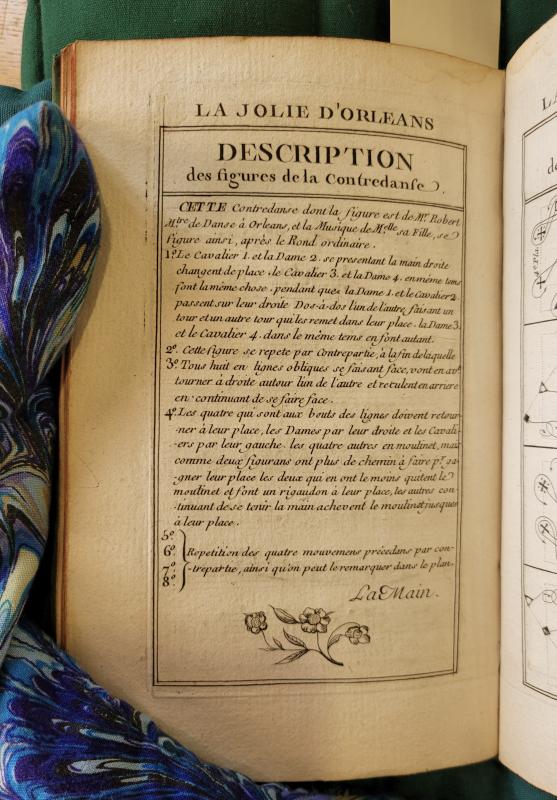 LA JOLIE D'ORLEANS
DESCRIPTION
des figures de la Contredanse.
CETTE Contredanse dont la figure est de Mr. Robert
Mtre. de Danse à Orleans, et la Musique de Melle. sa Fille, se
figure ainsi, après le Rond ordinaire.
1º. Le Cavalier 1. et la Dame 2. se presentant la main droite
changent de place, le Cavalier 3. et la Dame 4. en même tems
font la même chose, pendant que la Dame 1. et le Cavalier 2.
passent sur leur droite Dos-à-dos l'un de l'autre, faisant un
tour et un autre tour qui les remet dans leur place. la Dame 3.
et le Cavalier 4. dans le même tems en font autant.
2º. Cette figure se repete par Contrepartie, à la fin de laquelle
3º. Tous huit en lignes obliques se faisant face, vont en avt.
tourner à droite autour l'un de l'autre et reculent en arriere
en continuant de se faire face.
4º. Les quatre qui sont aux bouts des lignes doivent retour-
-ner à leur place, les Dames par leur droite et les Cavali-
-ers par leur gauche. les quatre autres en moulinet, mais
comme deux figurans ont plus de chemin à faire pr. ga-
-gner leur place les deux qui en ont le moins quitent le
moulinet et font un rigaudon à leur place, les autres con-
-tinuant de se tenir la main achevent le moulinet jusques
à leur place.
5º.
6º. Repetition des quatre mouvemens précedans par con-
7º. -trepartie, ainsi qu'on peut le remarquer dans le plan.
8º.
La Main.